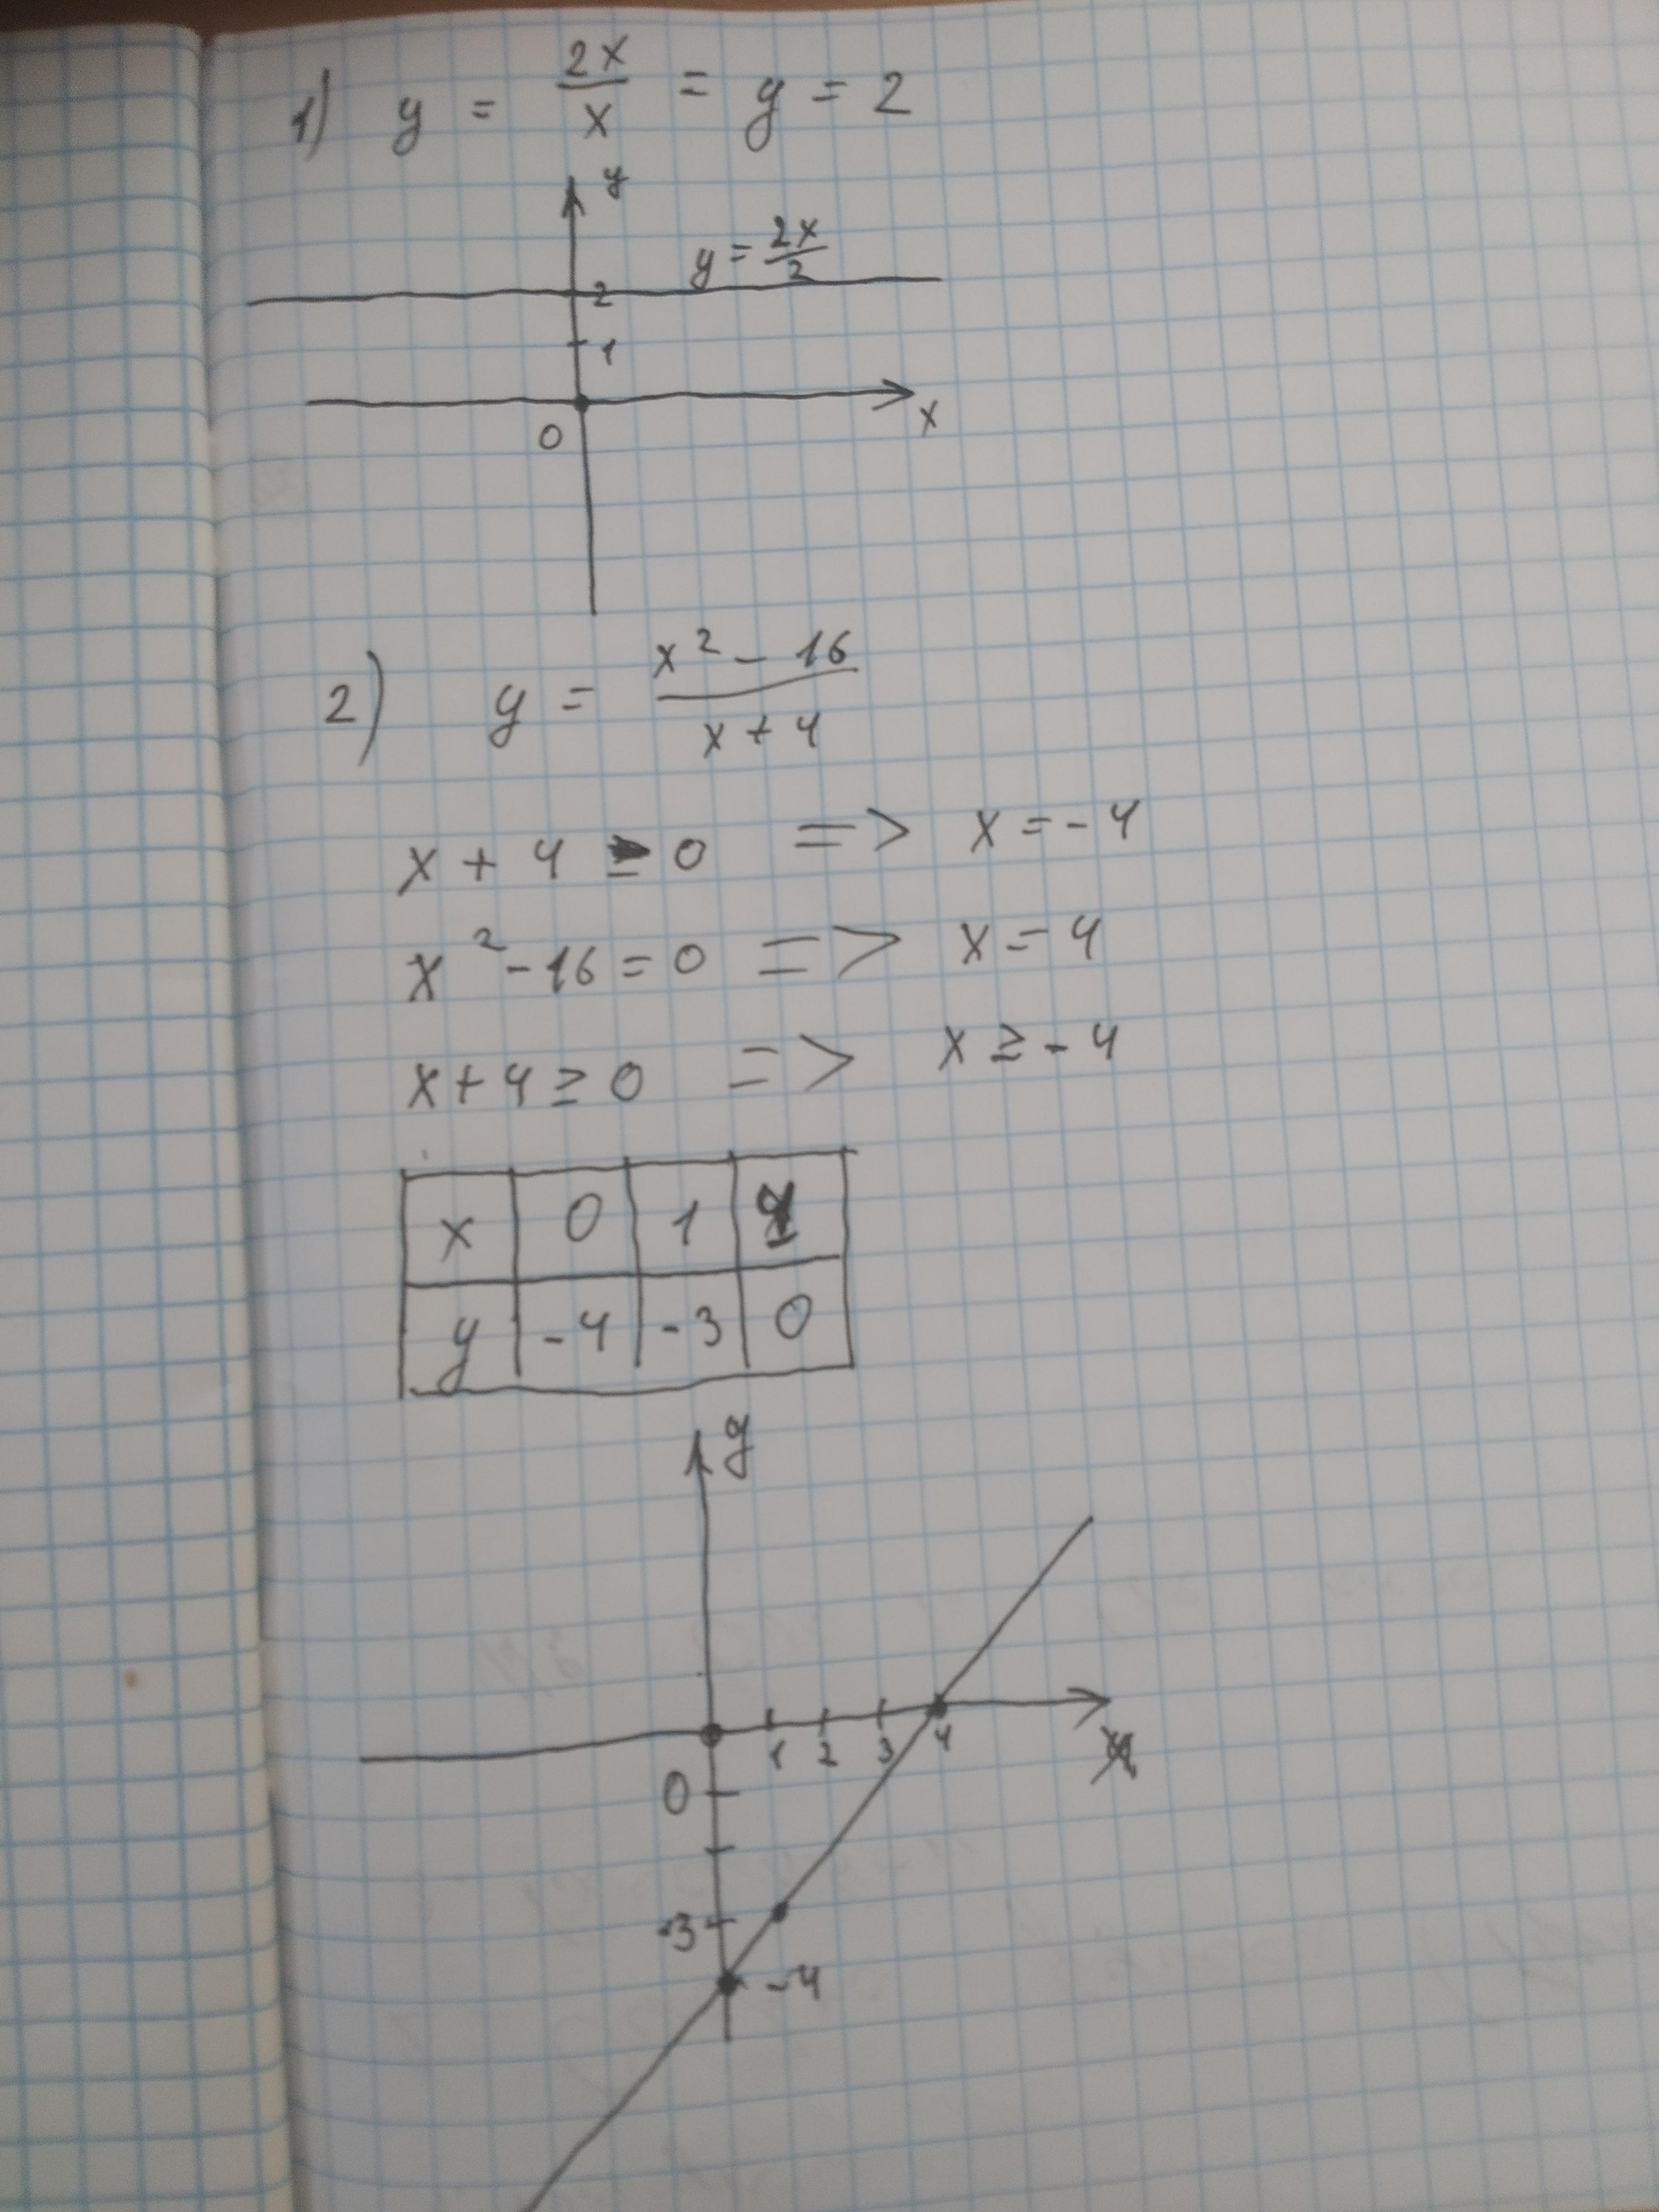 1) y = 2x/x = y = 2
y
y = 2x/2
2
1
0
x
2) y = x² - 16 / x + 4
x + 4 = 0 => x = -4
x² - 16 = 0 => x = 4
x + 4 ≥ 0 => x ≥ -4
x 0 1 4
y -4 -3 0
y
1 2 3 4
x
0
-3
-4